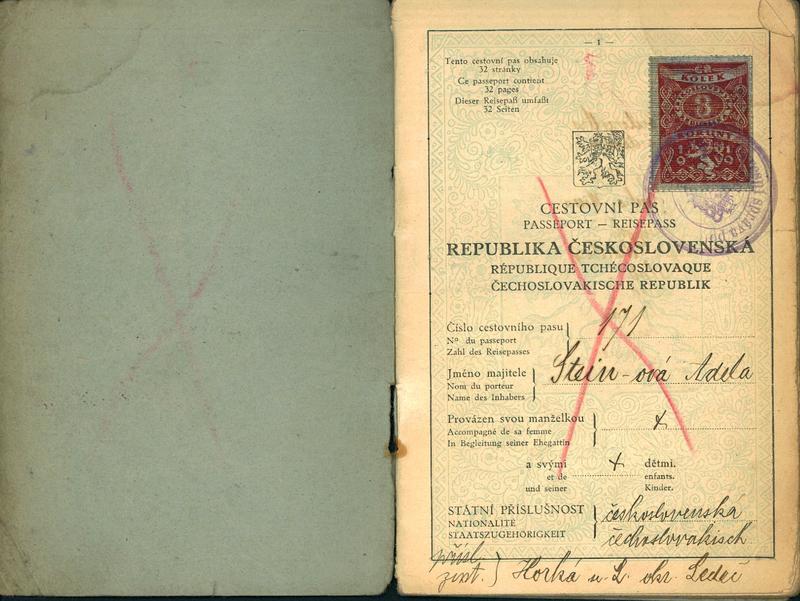 — 1 —
Tento cestovní pas obsahuje
32 stránky
Ce passeport contient
32 pages
Dieser Reisepaß umfaßt
32 Seiten
KOLEK
8
1919
CESTOVNÍ PAS
PASSEPORT — REISEPASS
REPUBLIKA ČESKOSLOVENSKÁ
RÉPUBLIQUE TCHÉCOSLOVAQUE
ČECHOSLOVAKISCHE REPUBLIK
Číslo cestovního pasu
171
No du passeport
Zahl des Reisepasses
Jméno majitele
Stein-ová Adela
Nom du porteur
Name des Inhabers
Provázen svou manželkou
+
Accompagné de sa femme
In Begleitung seiner Ehegattin
a svými + dětmi.
et de enfants.
und seiner Kinder.
STÁTNÍ PŘÍSLUŠNOST
československá
NATIONALITÉ
STAATSZUGEHÖRIGKEIT
čechoslovakisch
přísl.
zust.) Horká u L. okr. Ledeč